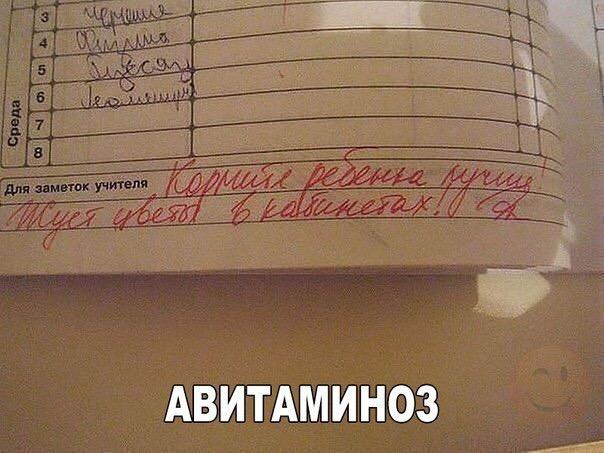 3 Черчение
4 Физика
5 Русский
6 Геометрия
7
8
Среда
Для заметок учителя Кормите ребенка лучше!
Жует цветы в кабинетах!
АВИТАМИНОЗ